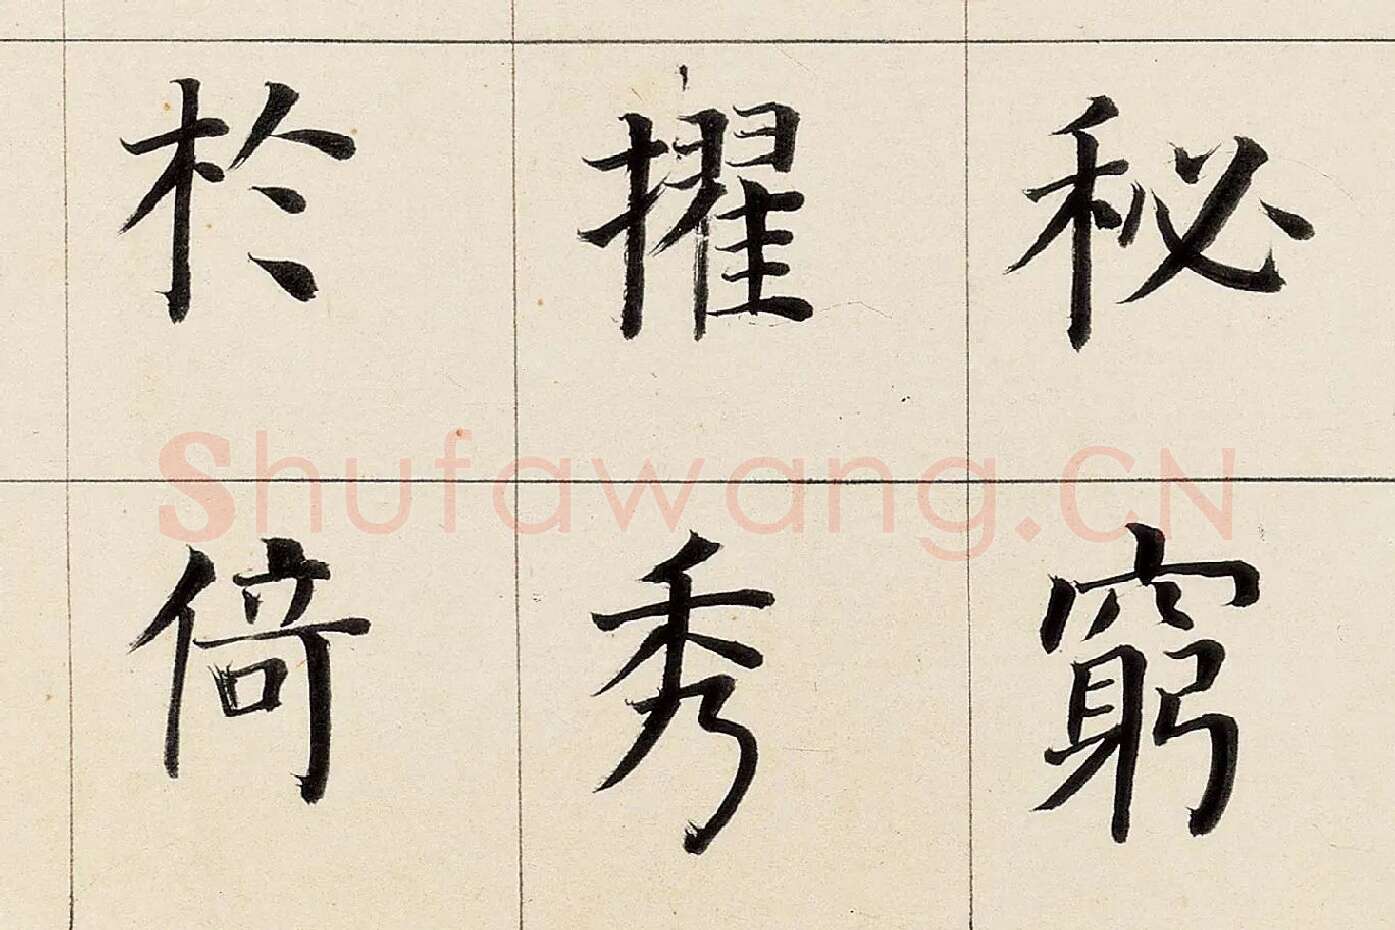 秘窮
擢秀
於倚
Shufawang.CN